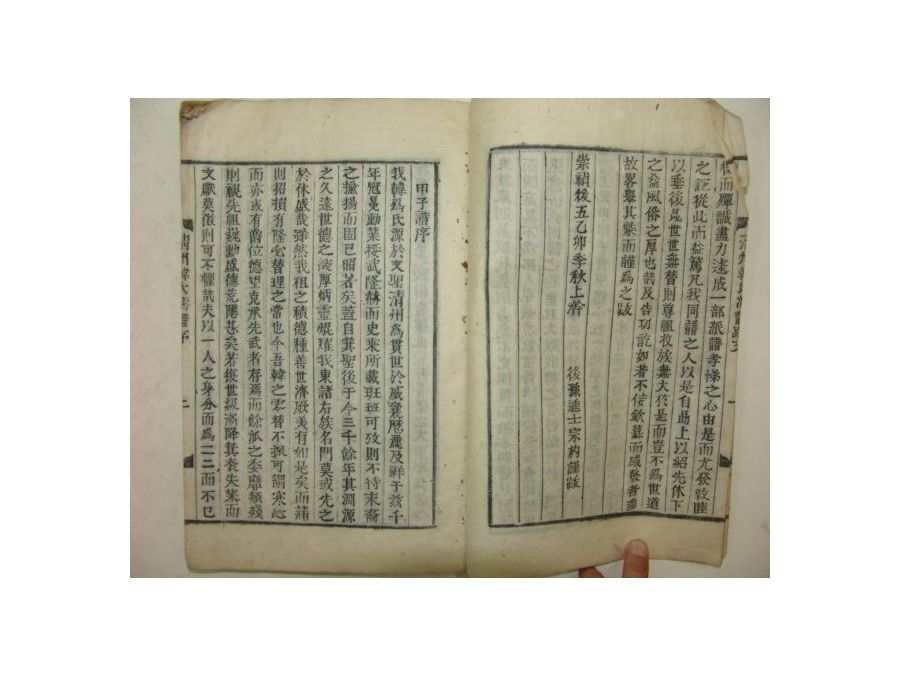 而殫誠盡力遂成一部派譜孝悌之心由是而尤發敦睦
之誼從此而益篤凡我同譜之人以是自勗上以紹先休下
以垂後昆世世無替則尊祖收族無夫於是而豈不爲世道
之益風俗之厚也哉及告功訖如若不佞欽慕而感發者多
故畧舉其槩而謹爲之跋
崇禎後五乙卯季秋上澣
後孫進士宗杓謹跋
甲子譜序
我韓爲氏源於文聖淸州爲貫世於威襄歷麗及鮮于玆千
年冠冕勳業接武隆赫而史乘所載班班可攷則不待末裔
之揄揚而固已昭著矣蓋自箕聖後于今三千餘年其淵源
之久遠世德之淀厚炳靈焜耀我東諸右族名門莫或先之
於休盛哉雖然我祖之積德種善世濟厥美有如是矣而
則招損有隆必替理之常也今吾韓之零替不振可謂寒心
而亦或有爵位德望克承先武者存焉而餘派之委靡頹殘
則視先祖巍勳盛德荒墜甚矣若後世級漸降箕裘失業而
文獻莫徵則可不懼哉夫以一人之身分而爲二三而不已
淸州韓氏譜序
二